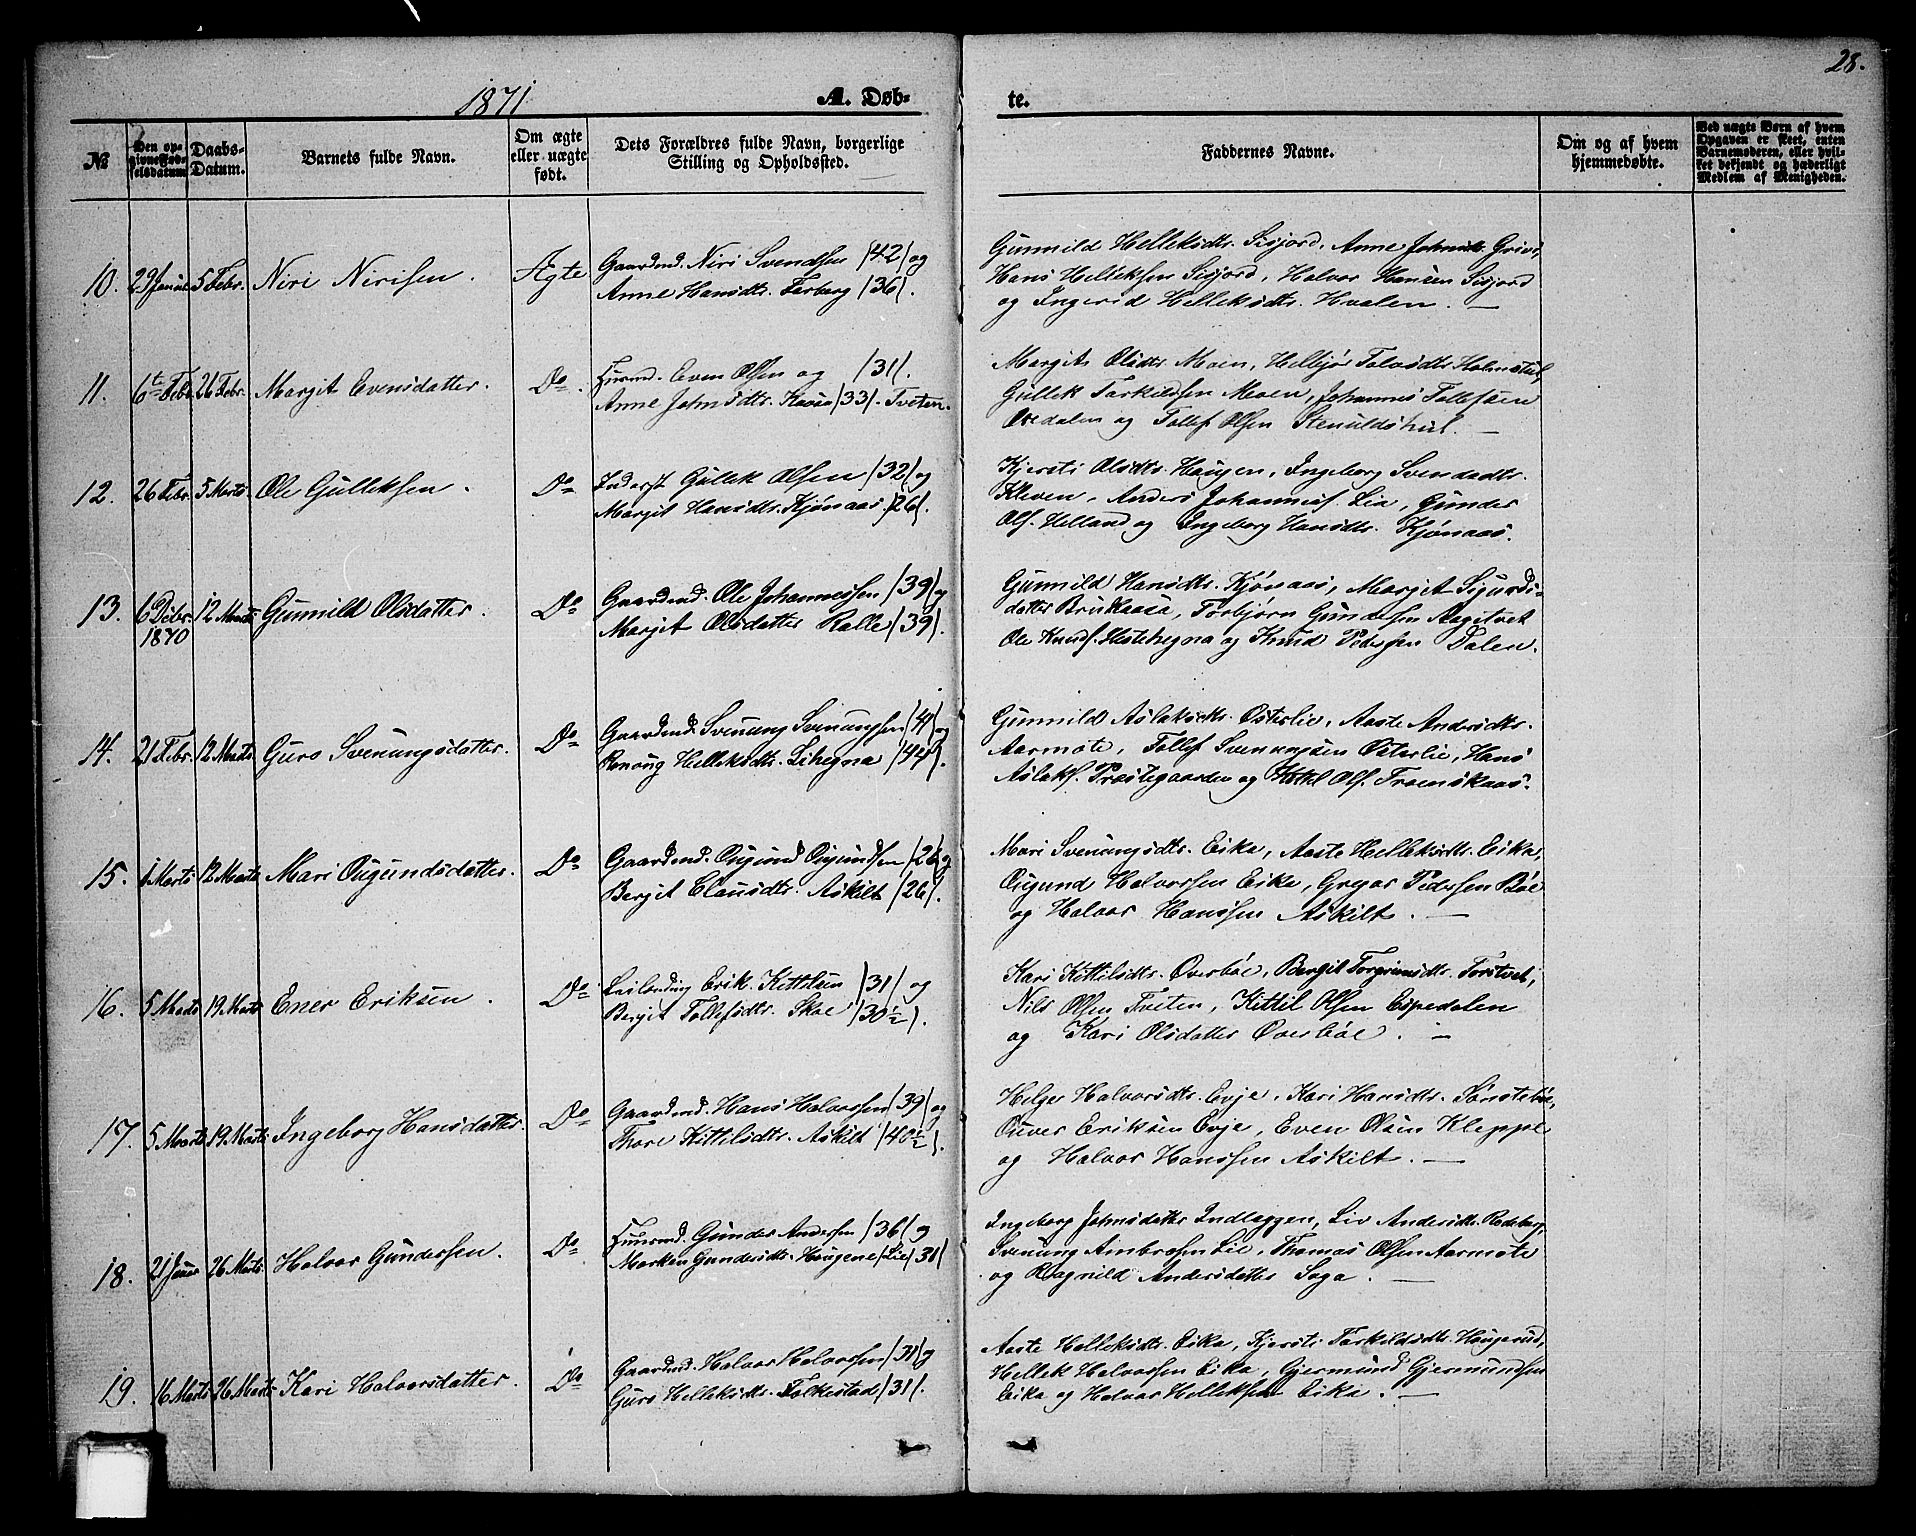 28.
1871
A. Døb-
te.
№
Den op-
givne Fød-
selsdatum
Daabs-
Datum.
Barnets fulde Navn.
Om ægte
eller uægte
født.
Dets Forældres fulde Navn, borgerlige
Stilling og Opholdssted.
Faddernes Navne.
Om og af hvem
hjemmedøbte.
Ved uægte Børn af hvem
Opgaven er skeet, enten
Barnemoderen, eller hvil-
ket bekjendt og hæderligt
Medlem af Menigheden.
10. 29 Januar 5 Febr. Niri Nirisen. Ægte
Gaardmd. Niri Svendsen /42/ og
Anne Hansdtr. Farberg /36/.
Gunnild Helleksdtr. Sisjord, Anne Johnsdtr. Grivi,
Hans Helleksen Sisjord, Halvor Hansen Sisjord
og Ingerid Helleksdtr. Hvalen. —
11. 6te Febr. 26 Febr. Margit Evensdatter. Do.
Husmd. Even Olsen og /31/.
Anne Johnsdtr. Kaasa /33/. Tveten.
Margit Olsdtr. Moen, Helbjør Tolvsdtr. Holmstul,
Gullek Tarkildsen Moen, Johannes Tollefsen
Ovedalen og Tollef Olsen Stenuldshul. —
12. 26 Febr. 5 Marts Ole Gulleksen. Do
Inderst Gullek Olsen /32/ og
Margit Hansdtr. Kjønaas /26/.
Kjersti Olsdtr. Haugen, Ingeborg Svendsdtr.
Kleven, Anders Johannesf. Lia, Gunder
Olf. Helland og Ingeborg Hansdtr. Kjønaas.
13. 6 Debr. 1870 12 Marts Gunnild Olsdatter. Do
Gaardmd. Ole Johannessen /39/ og
Margit Olsdatter Kalle /39/.
Gunnild Hansdtr. Kjønaas, Margit Sigurds-
datter Brukaasa, Torbjørn Gundersen Aagitvet
Ole Knudf. Hestehegna og Knud Pedersen Dalen.
14. 21 Febr. 12 Marts Guro Svenungsdatter. Do
Gaardmd. Svenung Svenungsen /41/ og
Rønoug Helleksdtr. Lihegna /44/.
Gunnild Aslaksdtr. Østerlie, Aaste Andersdtr.
Aarmote, Tollef Svenungsen Østerlie, Hans
Aslakf. Præstegaarden og Kittil Olf. Træmskaas.
15. 1 Marts 12 Marts Mari Ougundsdatter. Do
Gaardmd. Ougund Ougundsen /28/ og
Bergit Clausdtr. Askilt /26/.
Mari Svenungsdtr. Eika, Aaste Helleksdtr. Eika,
Ougund Halvorsen Eika, Gregar Pedersen Bøe
og Halvor Hanssen Askilt. —
16. 5 Marts 19 Marts Ener Eriksen. Do
Leilending Erik Kittilsen /31/ og
Bergit Tollefsdtr. Skoe /30½/.
Kari Kittilsdtr. Overbøe, Bergit Torgrimsdtr. Torstvet,
Nils Olsen Tveten, Kittil Olsen Espedalen
og Kari Olsdatter Overbøe. —
17. 5 Marts 19 Marts Ingeborg Hansdatter. Do
Gaardmd. Hans Halvorsen /39/ og
Thore Kittilsdtr. Askilt /40½/.
Helger Halvorsdtr. Evje, Kari Hansdtr. Sønstebø,
Ouver Eriksen Evje, Even Olsen Kleppe
og Halvor Hanssen Askilt. —
18. 21 Januar 26 Marts Halvor Gundersen. Do
Husmd. Gunder Andersen /36/ og
Marken Gundersdtr. Haugene (Lie) /31/
Ingeborg Johnsdatter Indlæggen, Liv Andersdtr. Rodeberg,
Svenung Ambrosen Lie, Thomas Olsen Aarmote
og Ragnild Andersdatter Saga. —
19. 16 Marts 26 Marts Kari Halvorsdatter. Do
Gaardmd. Halvor Halvorsen /31/ og
Guro Helleksdtr. Folkestad /31/.
Aaste Helleksdtr. Eika, Kjersti Tarkildsdtr. Haugerud,
Hellek Halvorsen Eika, Gjermund Gjermundsen
Eika og Halvor Helleksen Eika. —